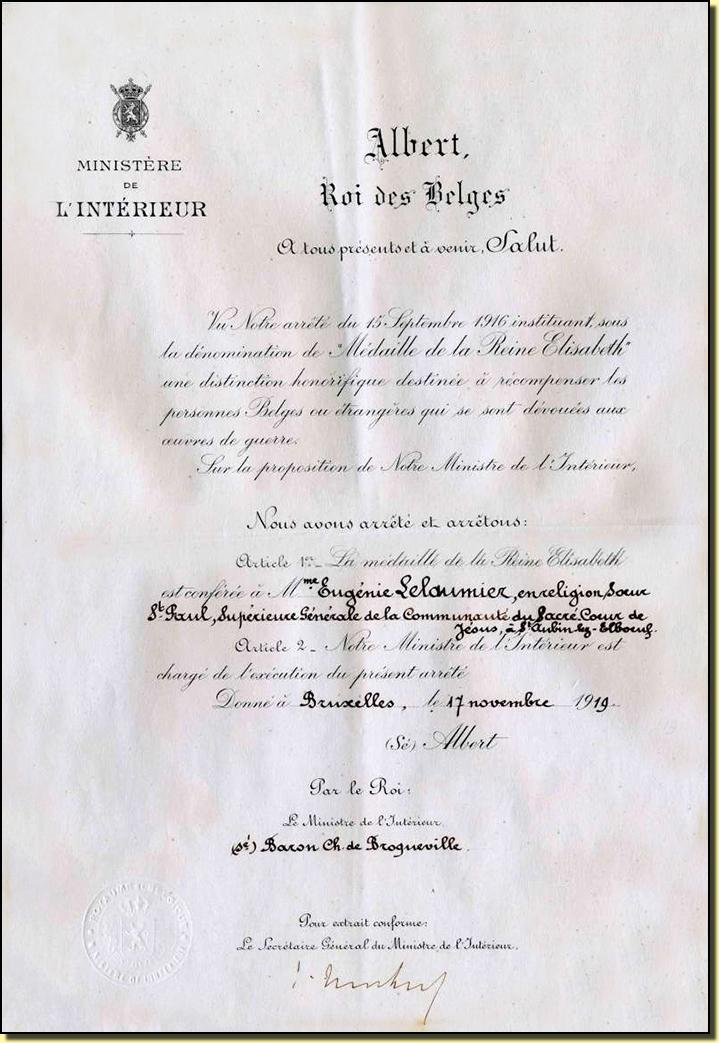 MINISTÈRE
DE
L'INTÉRIEUR
Albert,
Roi des Belges
A tous présents et à venir, Salut.
Vu Notre arrêté du 15 Septembre 1916 instituant, sous
la dénomination de "Médaille de la Reine Elisabeth"
une distinction honorifique destinée à récompenser les
personnes Belges ou étrangères qui se sont dévouées aux
œuvres de guerre.
Sur la proposition de Notre Ministre de l'Intérieur,
Nous avons arrêté et arrêtons:
Article 1er_ La médaille de la Reine Elisabeth
est conférée à Mme Eugénie Lelaumier, en religion, Sœur
St Paul, Supérieure Générale de la Communauté du Sacré Cœur de
Jésus, à St Aubin-lez-Elboeuf.
Article 2_ Notre Ministre de l'Intérieur est
chargé de l'exécution du présent arrêté
Donné à Bruxelles, le 17 novembre 1919.
(Sé) Albert
Par le Roi:
Le Ministre de l'Intérieur
(sé) Baron Ch. de Broqueville.
Pour extrait conforme:
Le Secrétaire Général du Ministre de l'Intérieur.